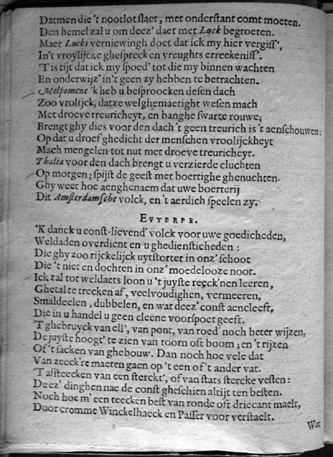 Datmen die 't nootlot slaet, met onderstant comt moeten.
Den hemel zal u om deez' daet met Luck begroeten.
Maer Lucks vernieuwingh doet dat ick my hier vergiss',
In't vroylijcke ghespreck en vreughts erreekeniss'.
'T is tijt dat ick my spoed' tot die my binnen wachten
En onderwijz' in 't geen zy hebben te betrachten.
Melpomene 'k heb u besproocken desen dach
Zoo vrolijck, datze welghemaetight wesen mach
Met droeve treuricheyt, en banghe swarte rouwe;
Brengt ghy dies voor den dach 't geen treurich is 't aenschouwen:
Op dat u droef ghedicht der menschen vroolijckheyt
Mach mengelen tot nut met droeve treuricheyt.
Thalia voor den dach brengt u verzierde cluchten
Op morgen; spijst de geest met boertighe ghenuchten.
Ghy weet hoe aenghenaem dat uwe boerterij
Dit Amsterdamsche volck, en 't aerdich speelen zy.
EVTERPE.
'K danck u const-lievend' volck voor uwe goedicheden,
Weldaden overdient en u ghediensticheden:
Die ghy zoo rijckelijck uytstortet in onz' schoot
Die 't niet en dochten in onz' moedelooze noot.
Ick zal tot weldaets loon u 't juyste reeck'nen leeren,
Ghetal te trecken af, veelvoudighen, vermeeren,
Smaldeelen, dubbelen, en wat deez' const aencleeft,
Die in u handel u geen cleene voorspoet geeft.
'T ghebruyck van ell', van pont, van roed' noch beter wijzen,
De juyste hoogt' te zien van toorn oft boom; en 't rijzen
Of 't sacken van ghebouw. Dan noch hoe vele dat
Van zeeck're maeten gaen op 't een of 't ander vat.
'T afsteecken van een sterckt', of van stats stercke vesten:
Deez' dinghen nae de const gheschien altijt ten besten.
Noch hoe m' een teecken best van ronde oft driecant maect,
Door cromme Winckelhaeck en Passer voor
Wat